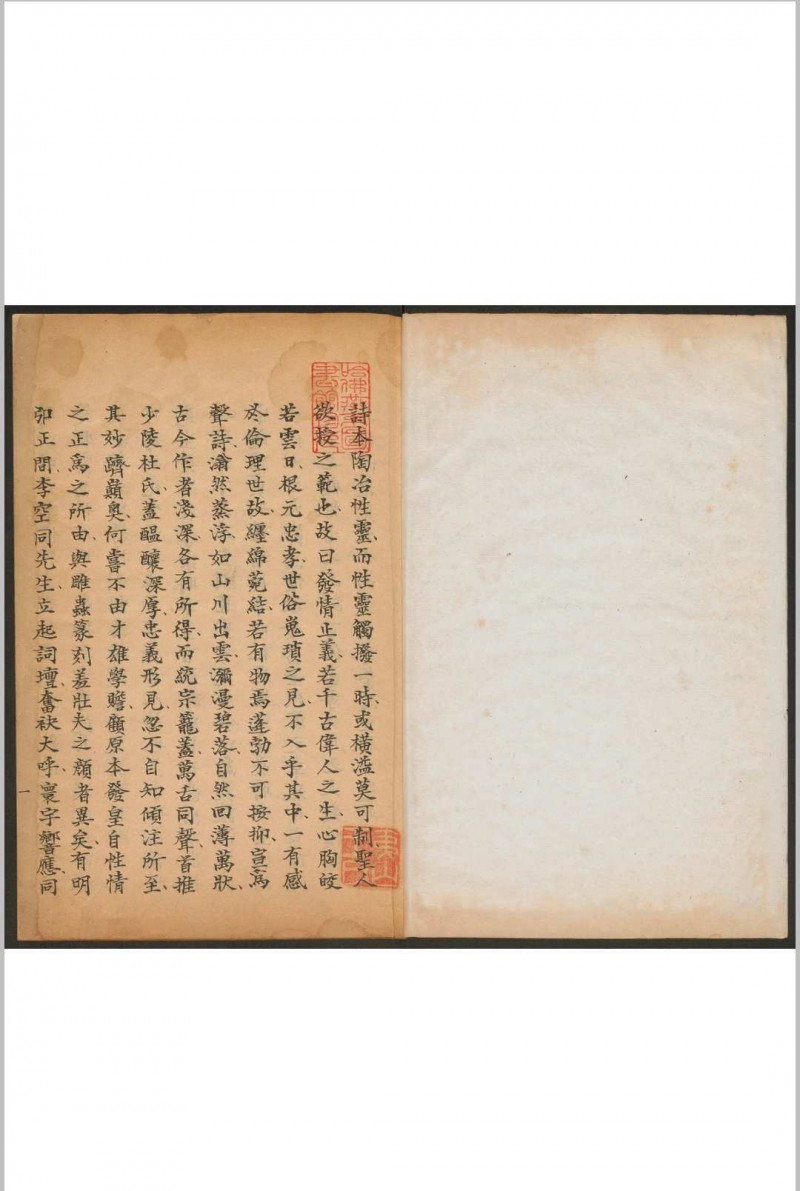 詩本陶冶性靈、而性靈觸撥一時、或橫溢莫可制聖人
欲授之範也、故曰發情止義、若千古偉人之生、心胸皎
若雲日、根元忠孝、世俗嵬瑣之見、不入乎其中、一有感
於倫理世故、纏綿菀結、若有物焉蓬勃不可按抑、宣爲
聲詩、瀟然蒸浮、如山川出雲瀰漫碧落、自然回薄萬狀、
古今作者淺深、各有所得、而統宗籠蓋萬古同聲、首推
少陵杜氏、蓋醞釀深厚、忠義形見、忽不自知傾注所至、
其妙躋巔奧、何嘗不由才雄學贍、顧原本發皇自性情
之正爲之所由、與雕蟲篆刻羞壯夫之顏者異矣、有明
卯正間、李空同先生、立起詞壇、奮袂大呼、寰宇響應、同
一